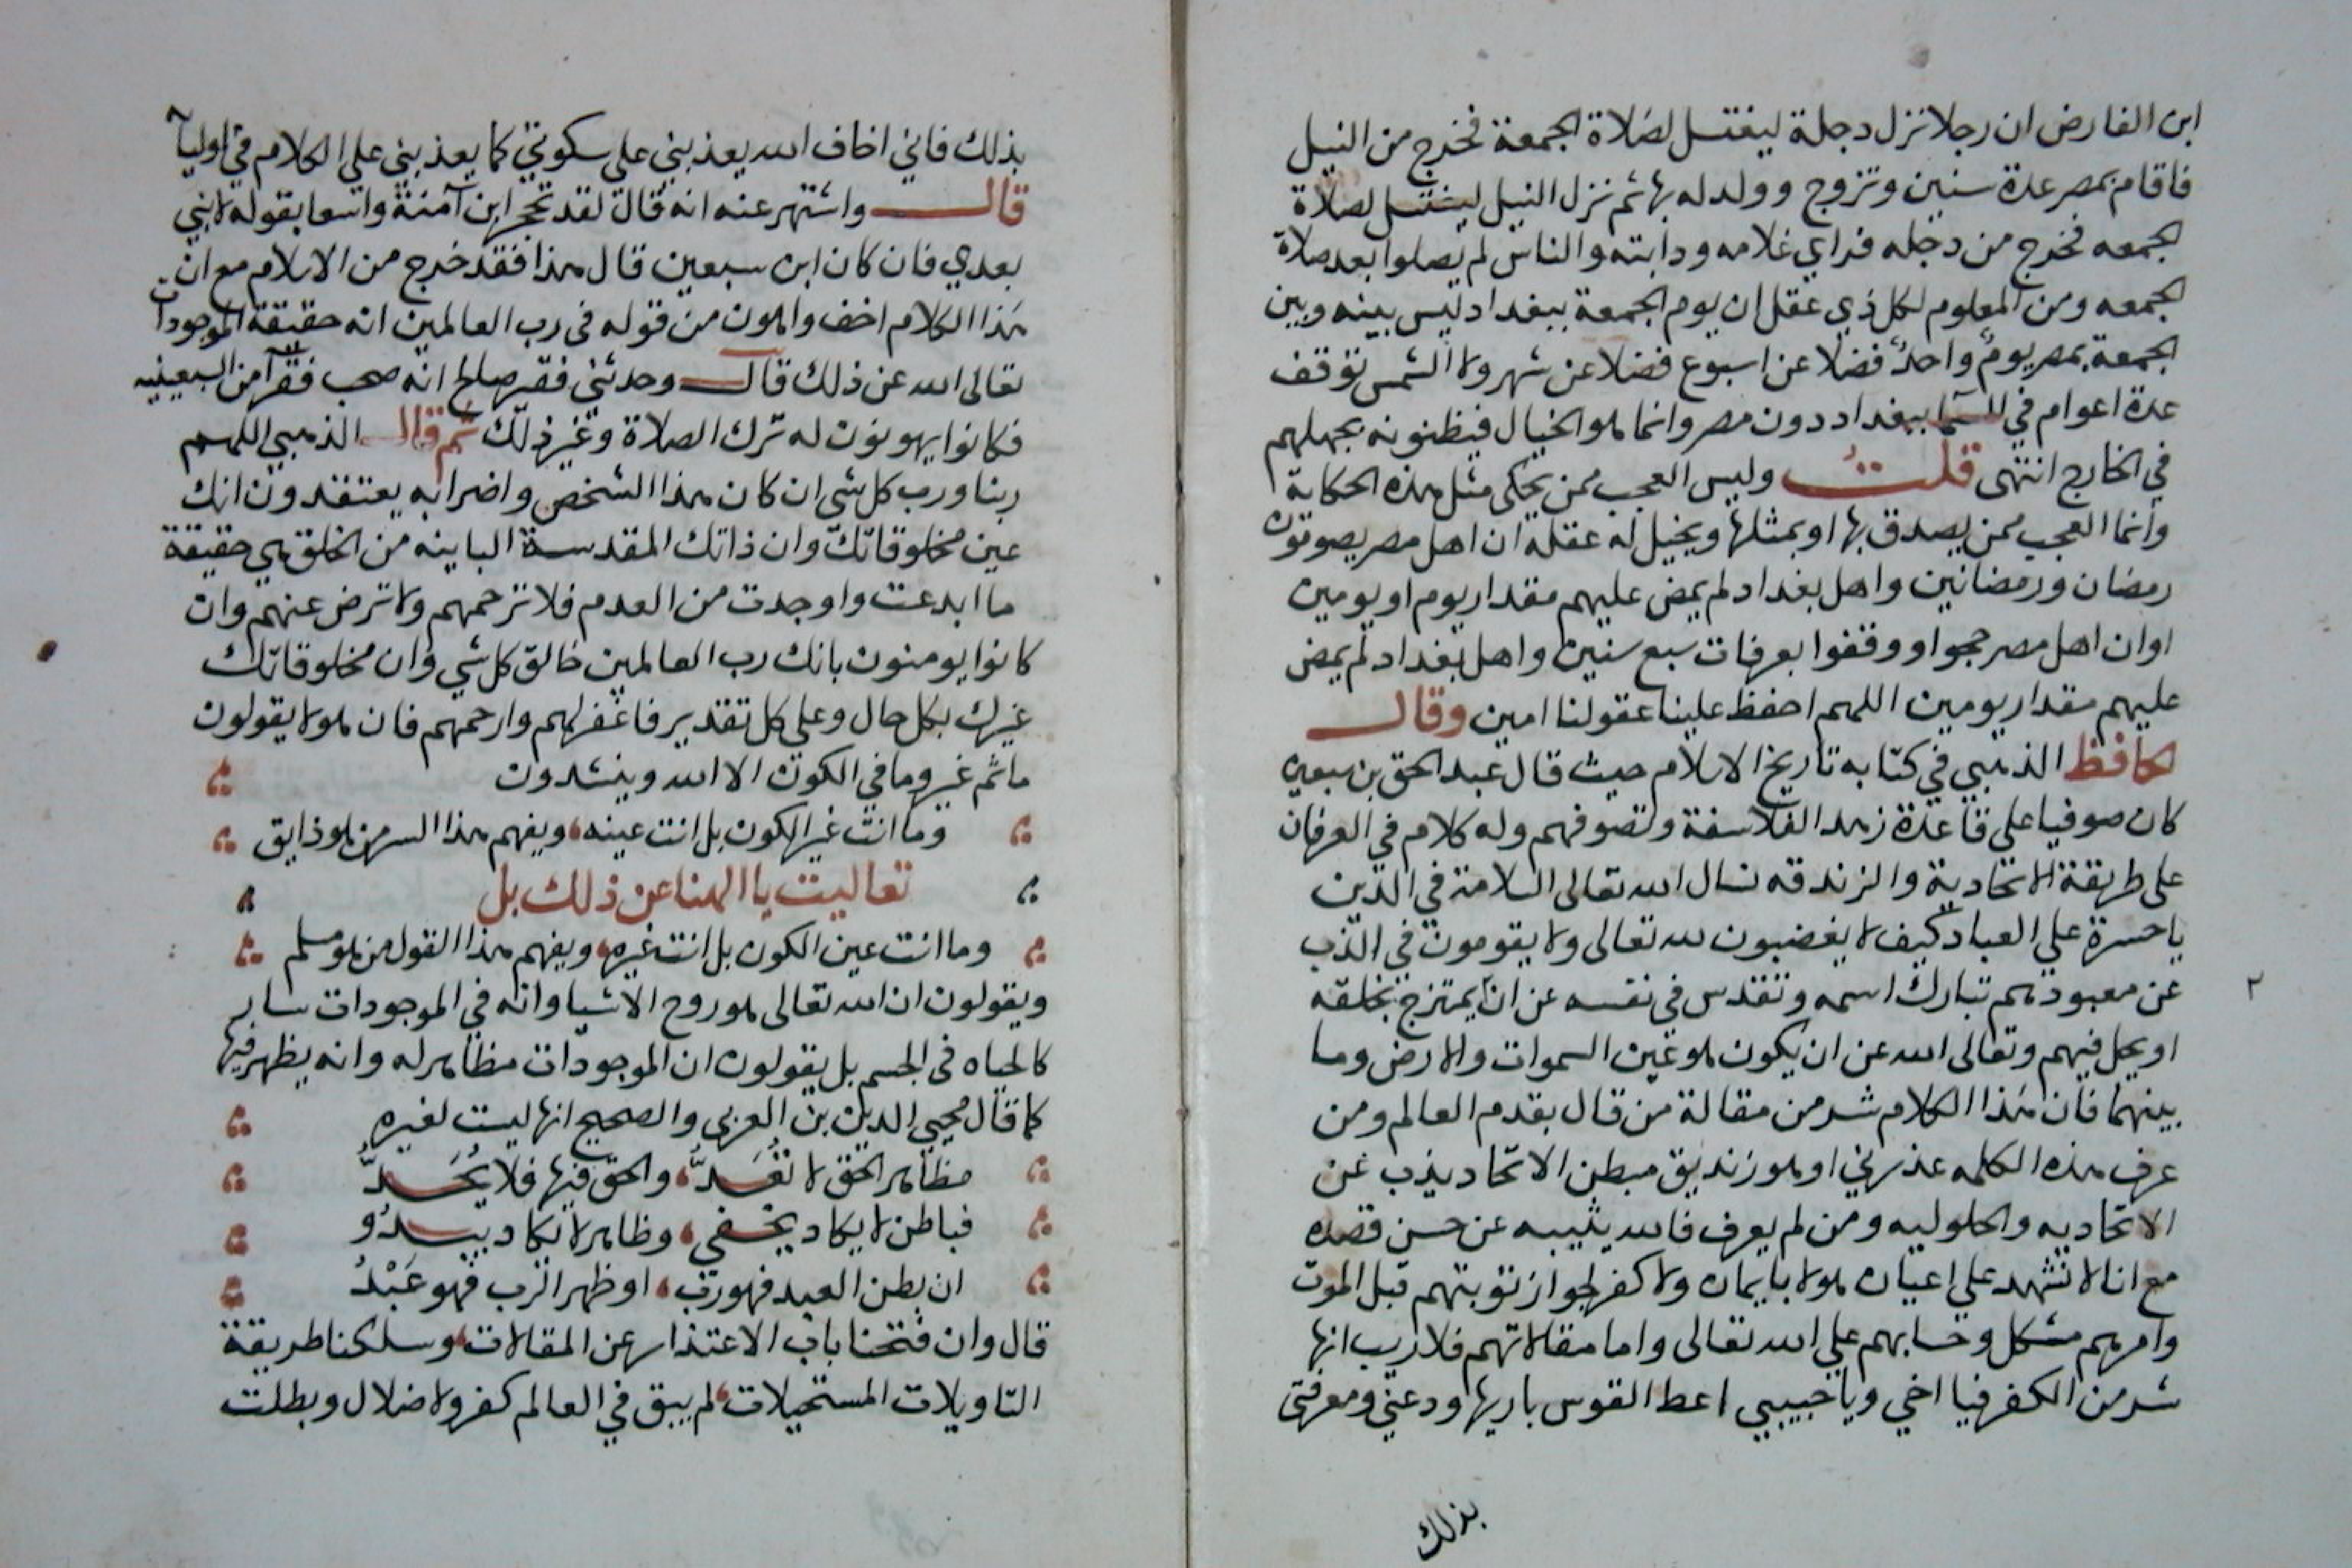 ابن الفارض ان رجلا نزل دجلة ليغتسل لصلاة الجمعة فخرج من النيل
فاقام بمصر عدة سنين وتزوج وولد له بها ثم نزل النيل ليغتسل لصلاة
الجمعه فخرج من دجله فراي غلامه ودابته والناس لم يصلوا بعد صلاة
الجمعه ومن المعلوم لكل ذي عقل ان يوم الجمعة ببغداد ليس بينه وبين
الجمعة بمصر يومٌ واحدٌ فضلا عن اسبوع فضلا عن شهر ولا الشمس توقف
عدة اعوام في السما ببغداد دون مصر وانما هو الخيال فيظنونه بجهلهم
في الخارج انتهى قلت وليس العجب ممن يحكى مثل هذه الحكاية
وانما العجب ممن يصدق بها او بمثلها ويخيل له عقله ان اهل مصر يصومون
رمضان ورمضانين واهل بغداد لم يمض عليهم مقدار يوم او يومين
او ان اهل مصر حجوا و وقفوا بعرفات سبع سنين واهل بغداد لم يمض
عليهم مقدار يومين اللهم احفظ علينا عقولنا امين وقال
الحافظ الذهبي في كتابه تاريخ الاسلام حيث قال عبد الحق بن سبعين
كان صوفيا على قاعدة زهد الفلاسفة وتصوفهم وله كلام في العرفان
على طريقة الاتحادية والزندقه نسال الله تعالى السلامة في الدين
ياحسرة علي العباد كيف لا يغضبون لله تعالى ولا يقومون في الذب
عن معبودهم تبارك اسمه وتقدس في نفسه عن ان يمتزج بخلقه
٢
او يحل فيهم وتعالى الله عن ان يكون هو عين السموات والارض وما
بينهما فان هذا الكلام شر من مقالة من قال بقدم العالم ومن
عرف هذه الكلمه عذرني او هو زنديق مبطن الاتحاد يذب عن
الاتحاديه والحلوليه ومن لم يعرف فالله يثيبه عن حسن قصده
مع انا لا نشهد علي اعيان هولا بايمان ولا كفر لجواز توبتهم قبل الموت
وامرهم مشكل وحسابهم علي الله تعالى واما مقالاتهم فلا ريب انها
شر من الكفر فيا اخي ويا حبيبي اعط القوس باريها ودعني ومعرفتي
بذلك
بذلك فاني اخاف الله يعذبني على سكوتي كما يعذبني علي الكلام في اوليآ
قال واشتهر عنه انه قال لقد تحجر ابن آمنة واسعا بقوله لا نبي
بعدي فان كان ابن سبعين قال هذا فقد خرج من الاسلام مع ان
هذا الكلام اخف واهون من قوله في رب العالمين انه حقيقة الموجودات
تعالى الله عن ذلك قال وحدثني فقير صالح انه صحب فقرآ من السبعينيه
فكانوا يهونون له ترك الصلاة وغير ذلك ثم قال الذهبي اللهم
ربنا ورب كل شي ان كان هذا الشخص واضرابه يعتقدون انك
عين مخلوقاتك وان ذاتك المقدسة الباينه من الخلق هي حقيقة
ما ابدعت واوجدت من العدم فلا ترحمهم ولا ترض عنهم وان
كانوا يومنون بانك رب العالمين خالق كل شي وان مخلوقاتك
غيرك بكل حال وعلي كل تقدير فاغفر لهم وارحمهم فان هولا يقولون
ما ثم غير وما في الكون الا الله وينشدون
وما انت غير الكون بل انت عينه ويفهم هذا السر من هو ذايق
تعاليت يا الهنا عن ذلك بل
وما انت عين الكون بل انت غيره ويفهم هذا القول من هو مسلم
ويقولون ان الله تعالى هو روح الاشيا وانه في الموجودات سار
كالحياه في الجسم بل يقولون ان الموجودات مظاهر له وانه يظهر فيها
كما قال محيي الدين بن العربي والصحيح انها ليست لغيره
مظاهر الحق لا تُعَدُّ والحق فيها فلا يُحَدُّ
فباطن لا يكاد يخفي وظاهر لا يكاد يبدُو
ان بطن العبد فهو رب او ظهر الرب فهو عَبْدُ
قال وان فتحنا باب الاعتذار عن المقالات وسلكنا طريقة
التاويلات المستحيلات لم يبق في العالم كفر ولا ضلال وبطلت